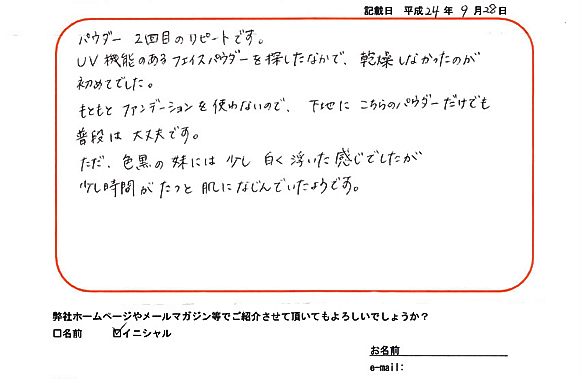 記載日 平成24年 9月28日
パウダー 2回目のリピートです。
UV機能のあるフェイスパウダーを探したなかで、乾燥しなかったのが
初めてでした。
もともとファンデーションを使わないので、下地にこちらのパウダーだけでも
普段は大丈夫です。
ただ、色黒の妹には少し白く浮いた感じでしたが
少し時間がたつと肌になじんでいたようです。
弊社ホームページやメールマガジン等でご紹介させて頂いてもよろしいでしょうか？
□名前 ☑イニシャル
お名前
e-mail: